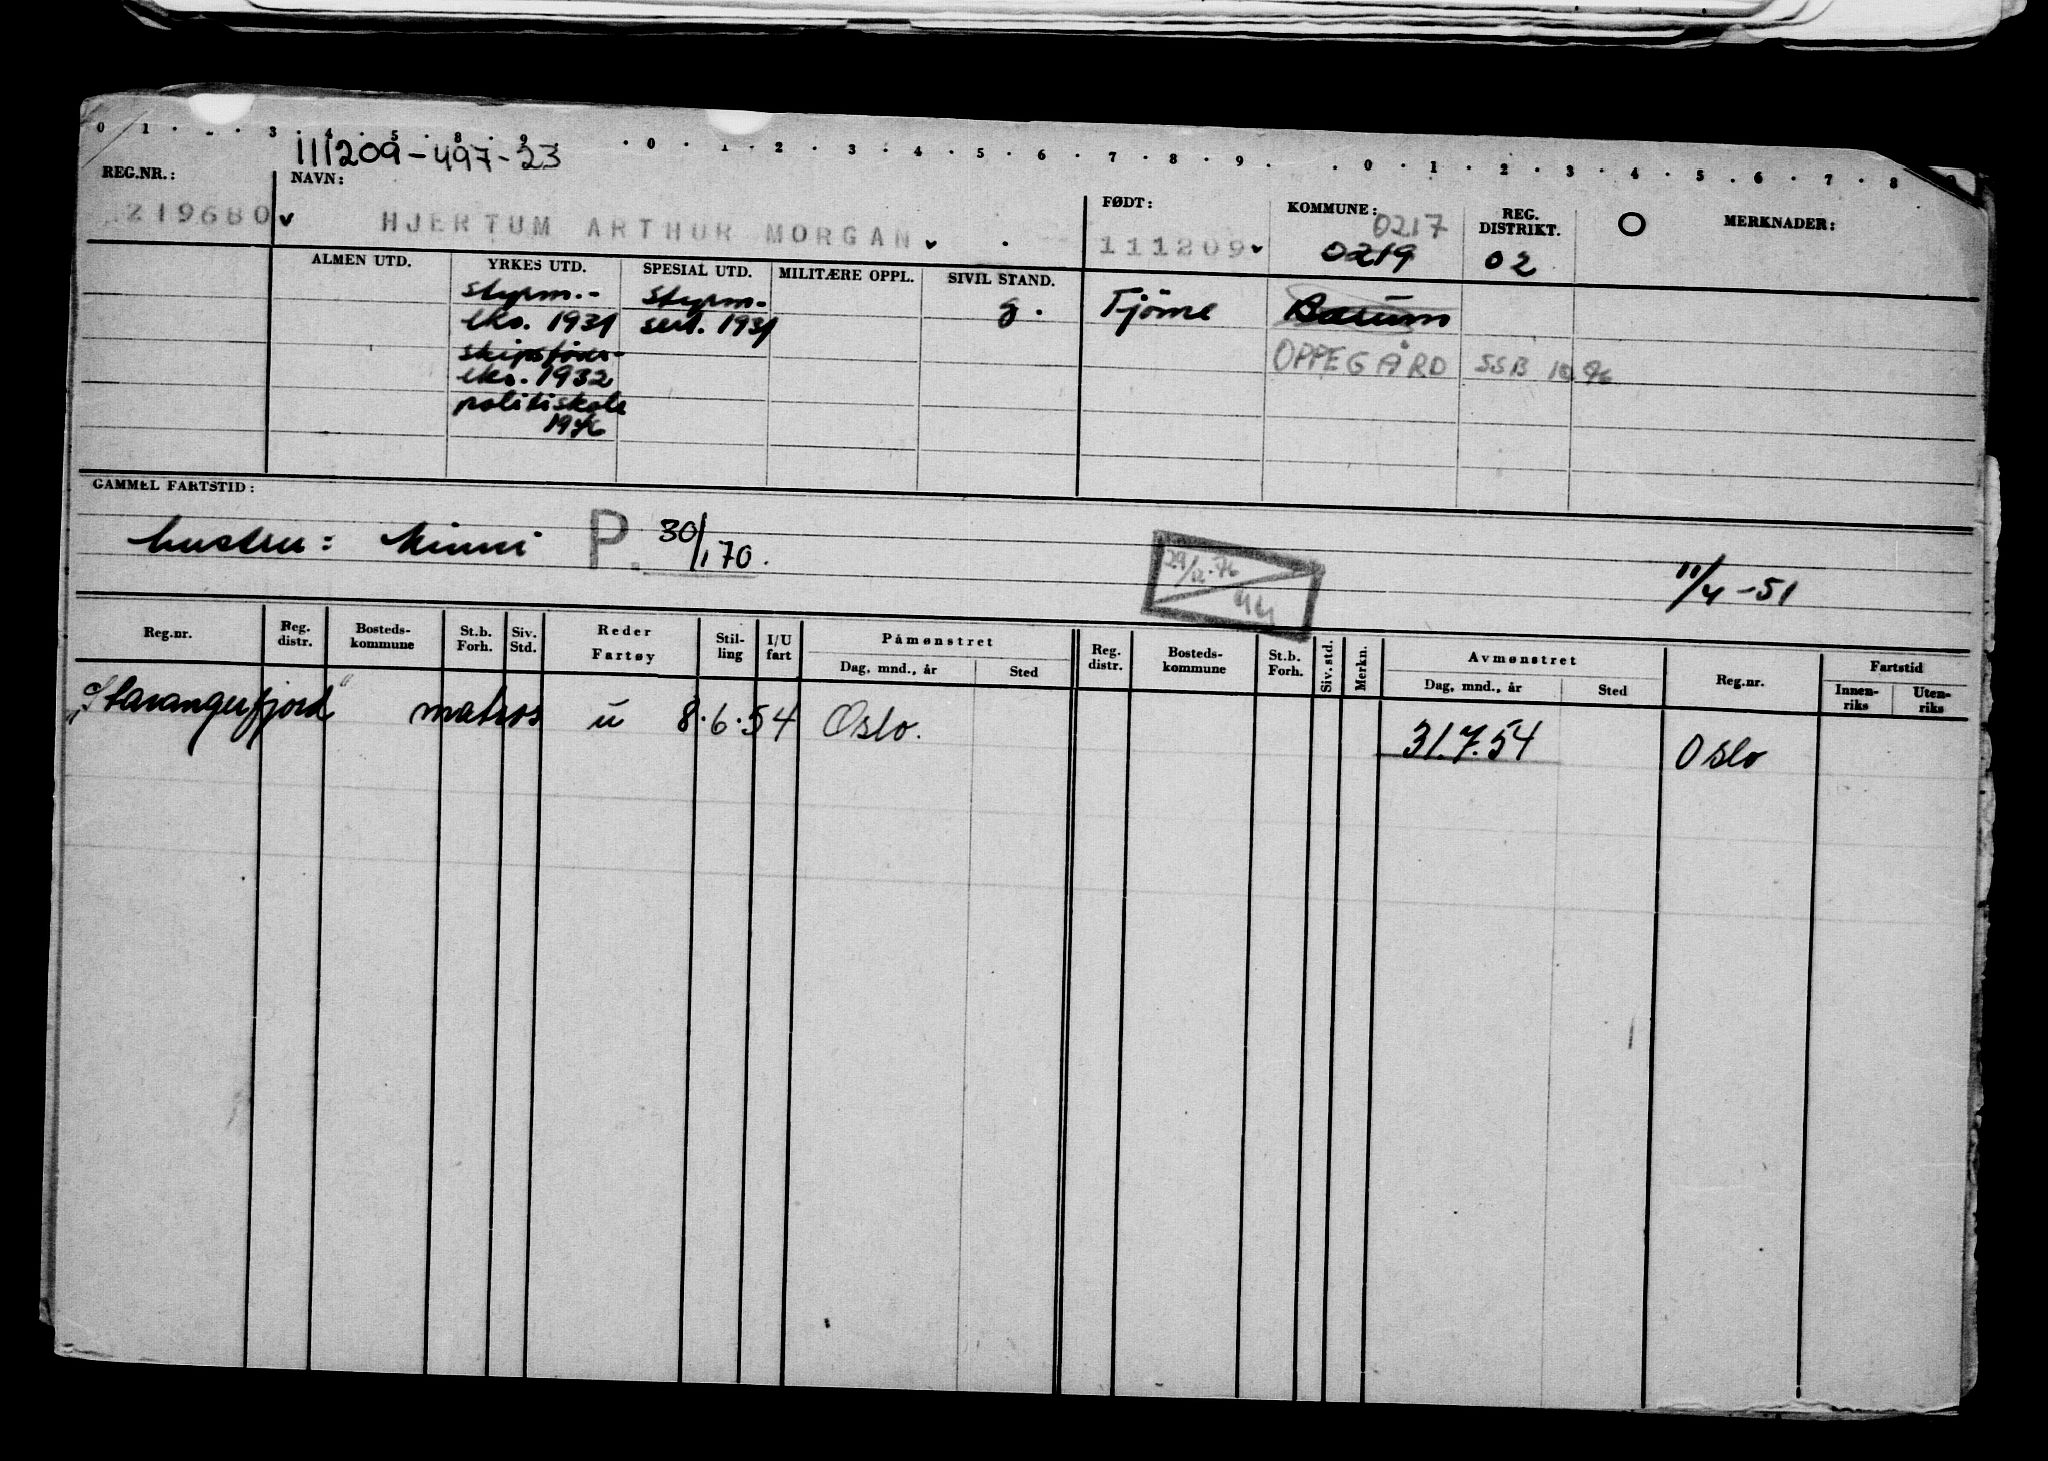 0 1 . . 3 . 4 . 5 . 8 . 9 . 0 . 1 . 2 . 3 . 4 . 5 . 6 . 7 . 8 . 9 . . 0 . 1 . 2 . 3 . 4 . 5 . 6 . 7 . 8
111209-497-23
REG.NR.: NAVN: FØDT: KOMMUNE: REG. DISTRIKT. O MERKNADER:
219680 HJERTUM ARTHUR MORGAN 111209 0217
0219 02
ALMEN UTD. YRKES UTD. SPESIAL UTD. MILITÆRE OPPL. SIVIL STAND.
styrm.- styrm- g. Tjöme Bærum
eks. 1931 sert. 1931
skipsförer- OPPEGÅRD SSB
eks. 1932
politiskole
1946
GAMMEL FARTSTID:
hustru: Minni P. 30/1 70.
29/12.76
44
11/4-51
Reg.nr. Reg. distr. Bosteds-kommune St.b. Forh. Siv. Std. Reder Fartøy Stil-ling I/U fart Påmønstret Reg. distr. Bosteds-kommune St.b. Forh. Siv. std. Merkn. Avmønstret Reg.nr. Fartstid
Dag, mnd., år Sted Dag, mnd., år Sted Innen-riks Uten-riks
"Stavangerfjord" matros u 8.6.54 Oslo. 31.7.54 Oslo